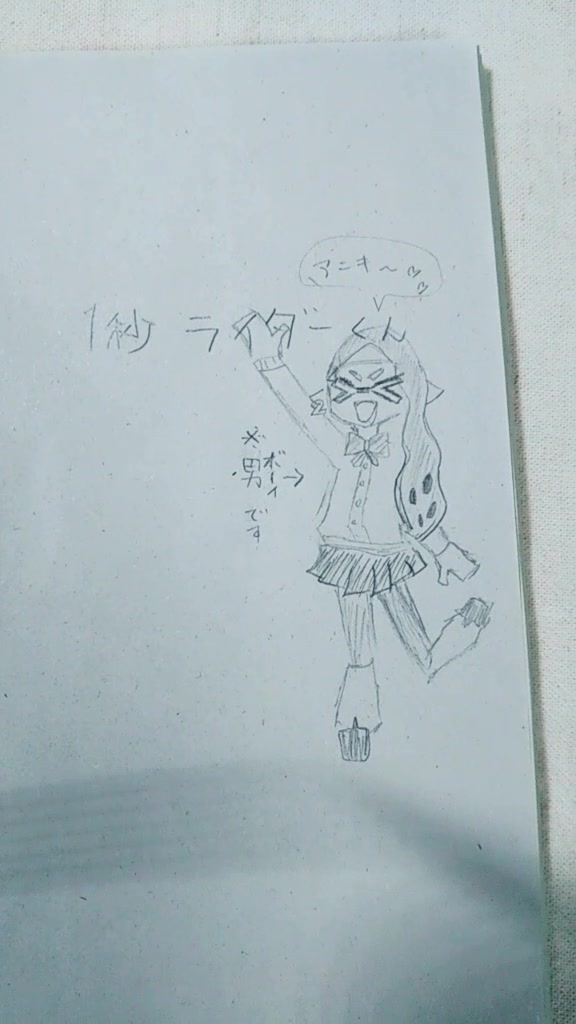 アニキ～♡♡
1秒 ライダーくん
※男です
ボーイ→